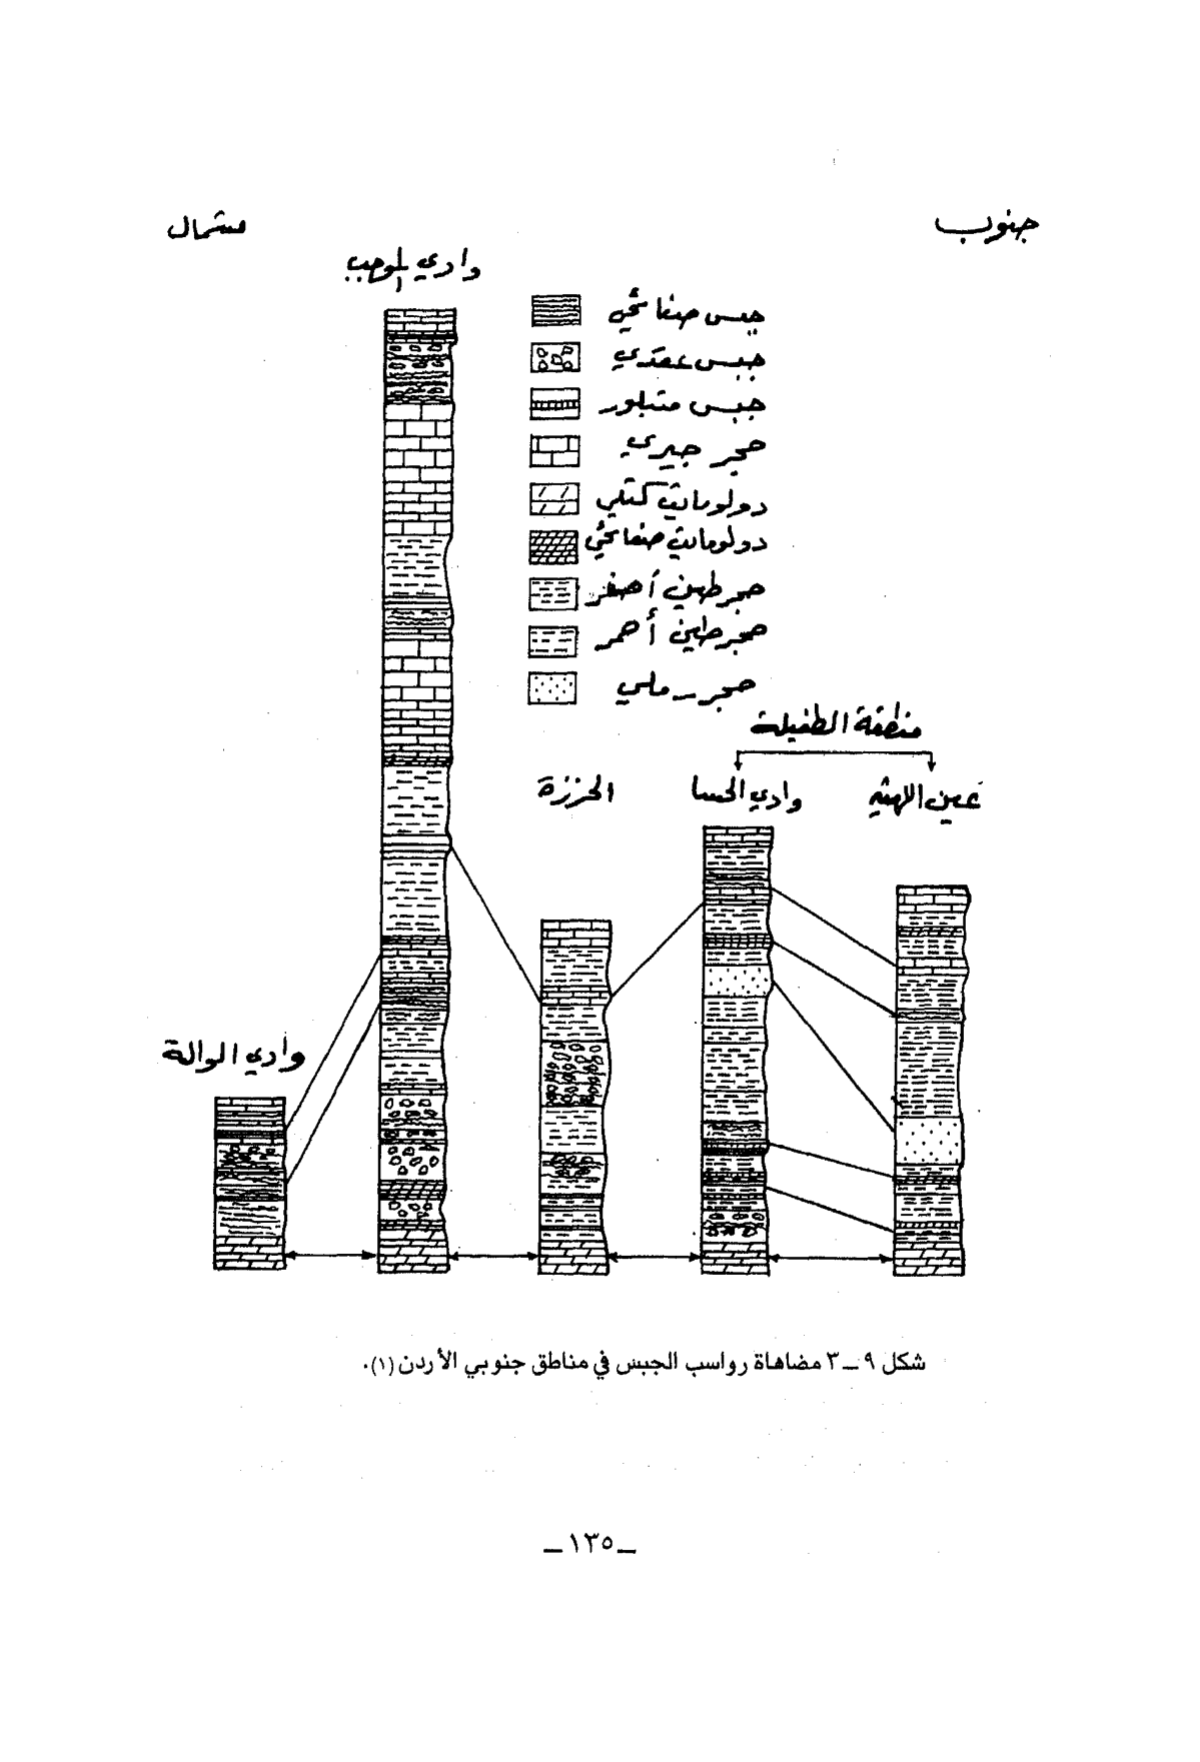 جنوب
شمال
وادي الموجب
جبس صفائحي
جبس عقدي
جبس متبلور
حجر جيري
دولومايت كتلي
دولومايت صفائحي
حجر طين أصفر
حجر طين أحمر
حجر رملي
منطقة الطفيلة
عين اللهثه
وادي الحسا
الحرزة
وادي الوالة
شكل ٩ ــ ٣ مضاهاة رواسب الجبس في مناطق جنوبي الأردن (١).
ــ ١٣٥ ــ